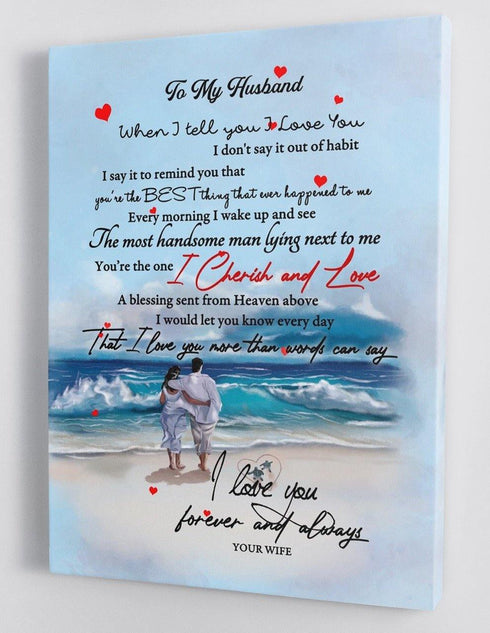 To My Husband
When I tell you I Love You
I don't say it out of habit
I say it to remind you that
you're the BEST thing that ever happened to me
Every morning I wake up and see
The most handsome man lying next to me
You're the one I Cherish and Love
A blessing sent from Heaven above
I would let you know every day
That I love you more than words can say
I love you
forever and always
YOUR WIFE